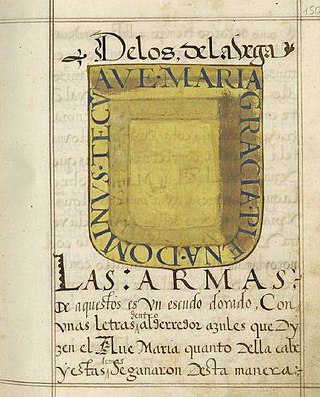 150
De los, de la Vega
AVE·MARIA
GRACIA·PLENA·DOMINVS·TECV
LAS:ARMAS:
de aquestos es vn escudo dorado, Con
vnas letras dentro alderredor azules que Dy
zen el Aue Maria quanto della cabe
y estas Armas se ganaron desta manera